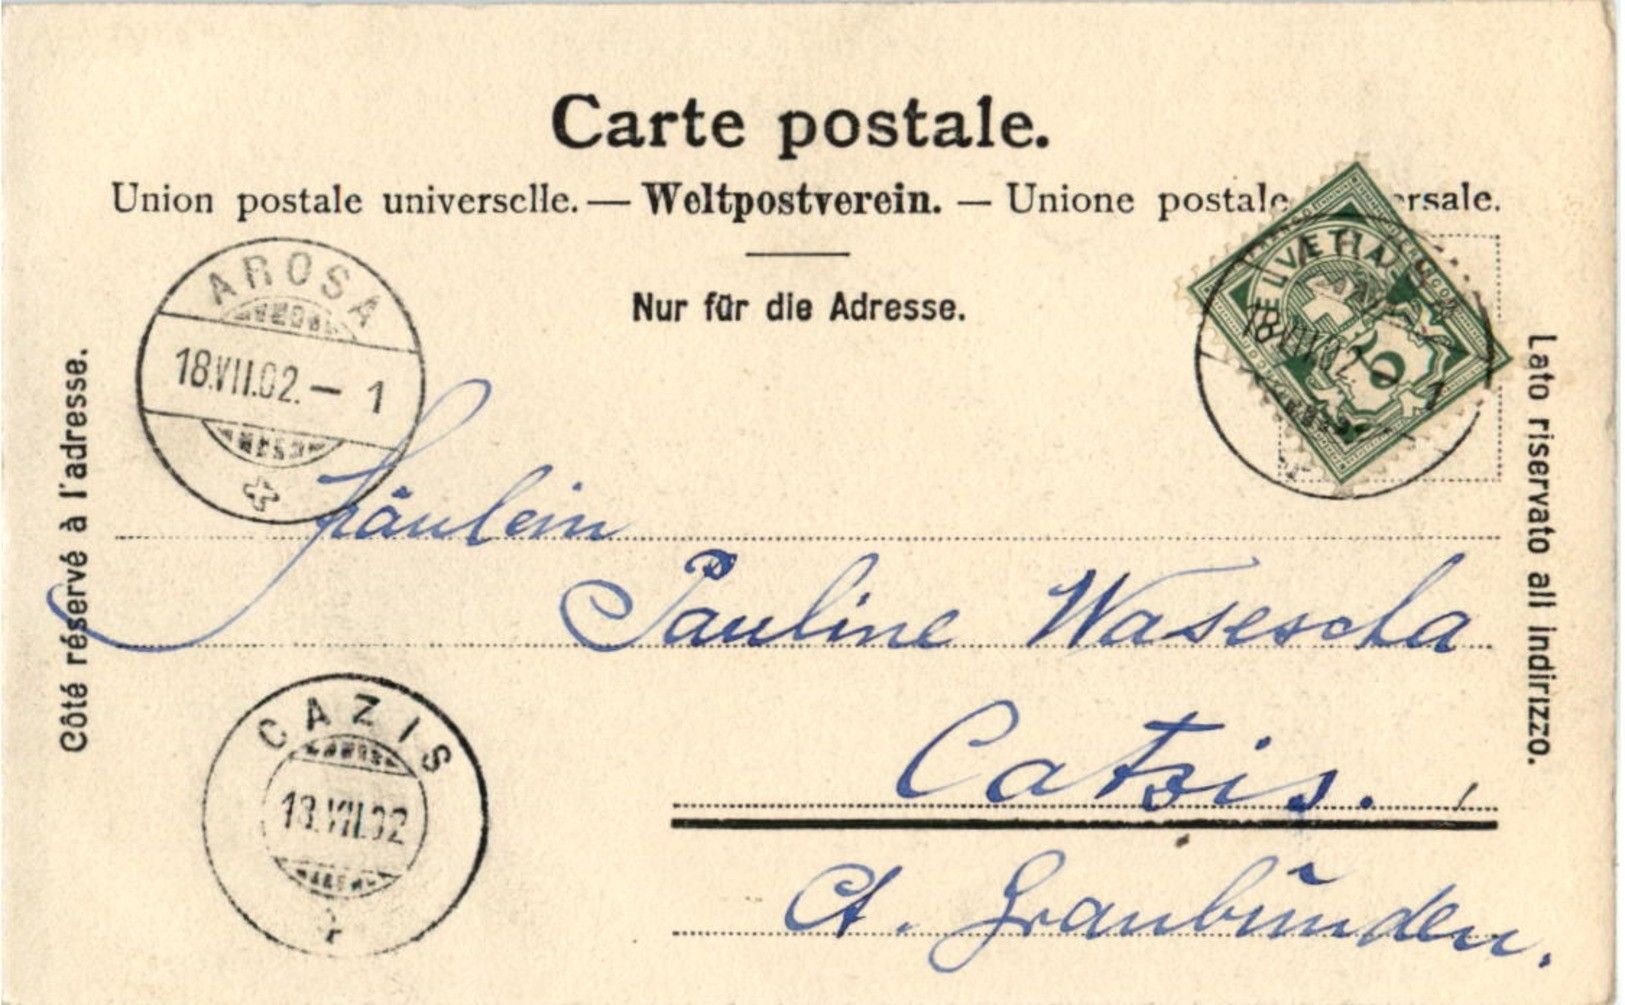 Carte postale.
Union postale universelle. — Weltpostverein. — Unione postale
Nur für die Adresse.
Côté réservé à l'adresse.
Lato riservato all indirizzo.
AROSA
18.VII.02. – 1
HELVETIA
5
18.VII.02. – 1
Fräulein
Pauline Wasescha
Catzis.
Ct. Graubünden.
CAZIS
18.VII.02